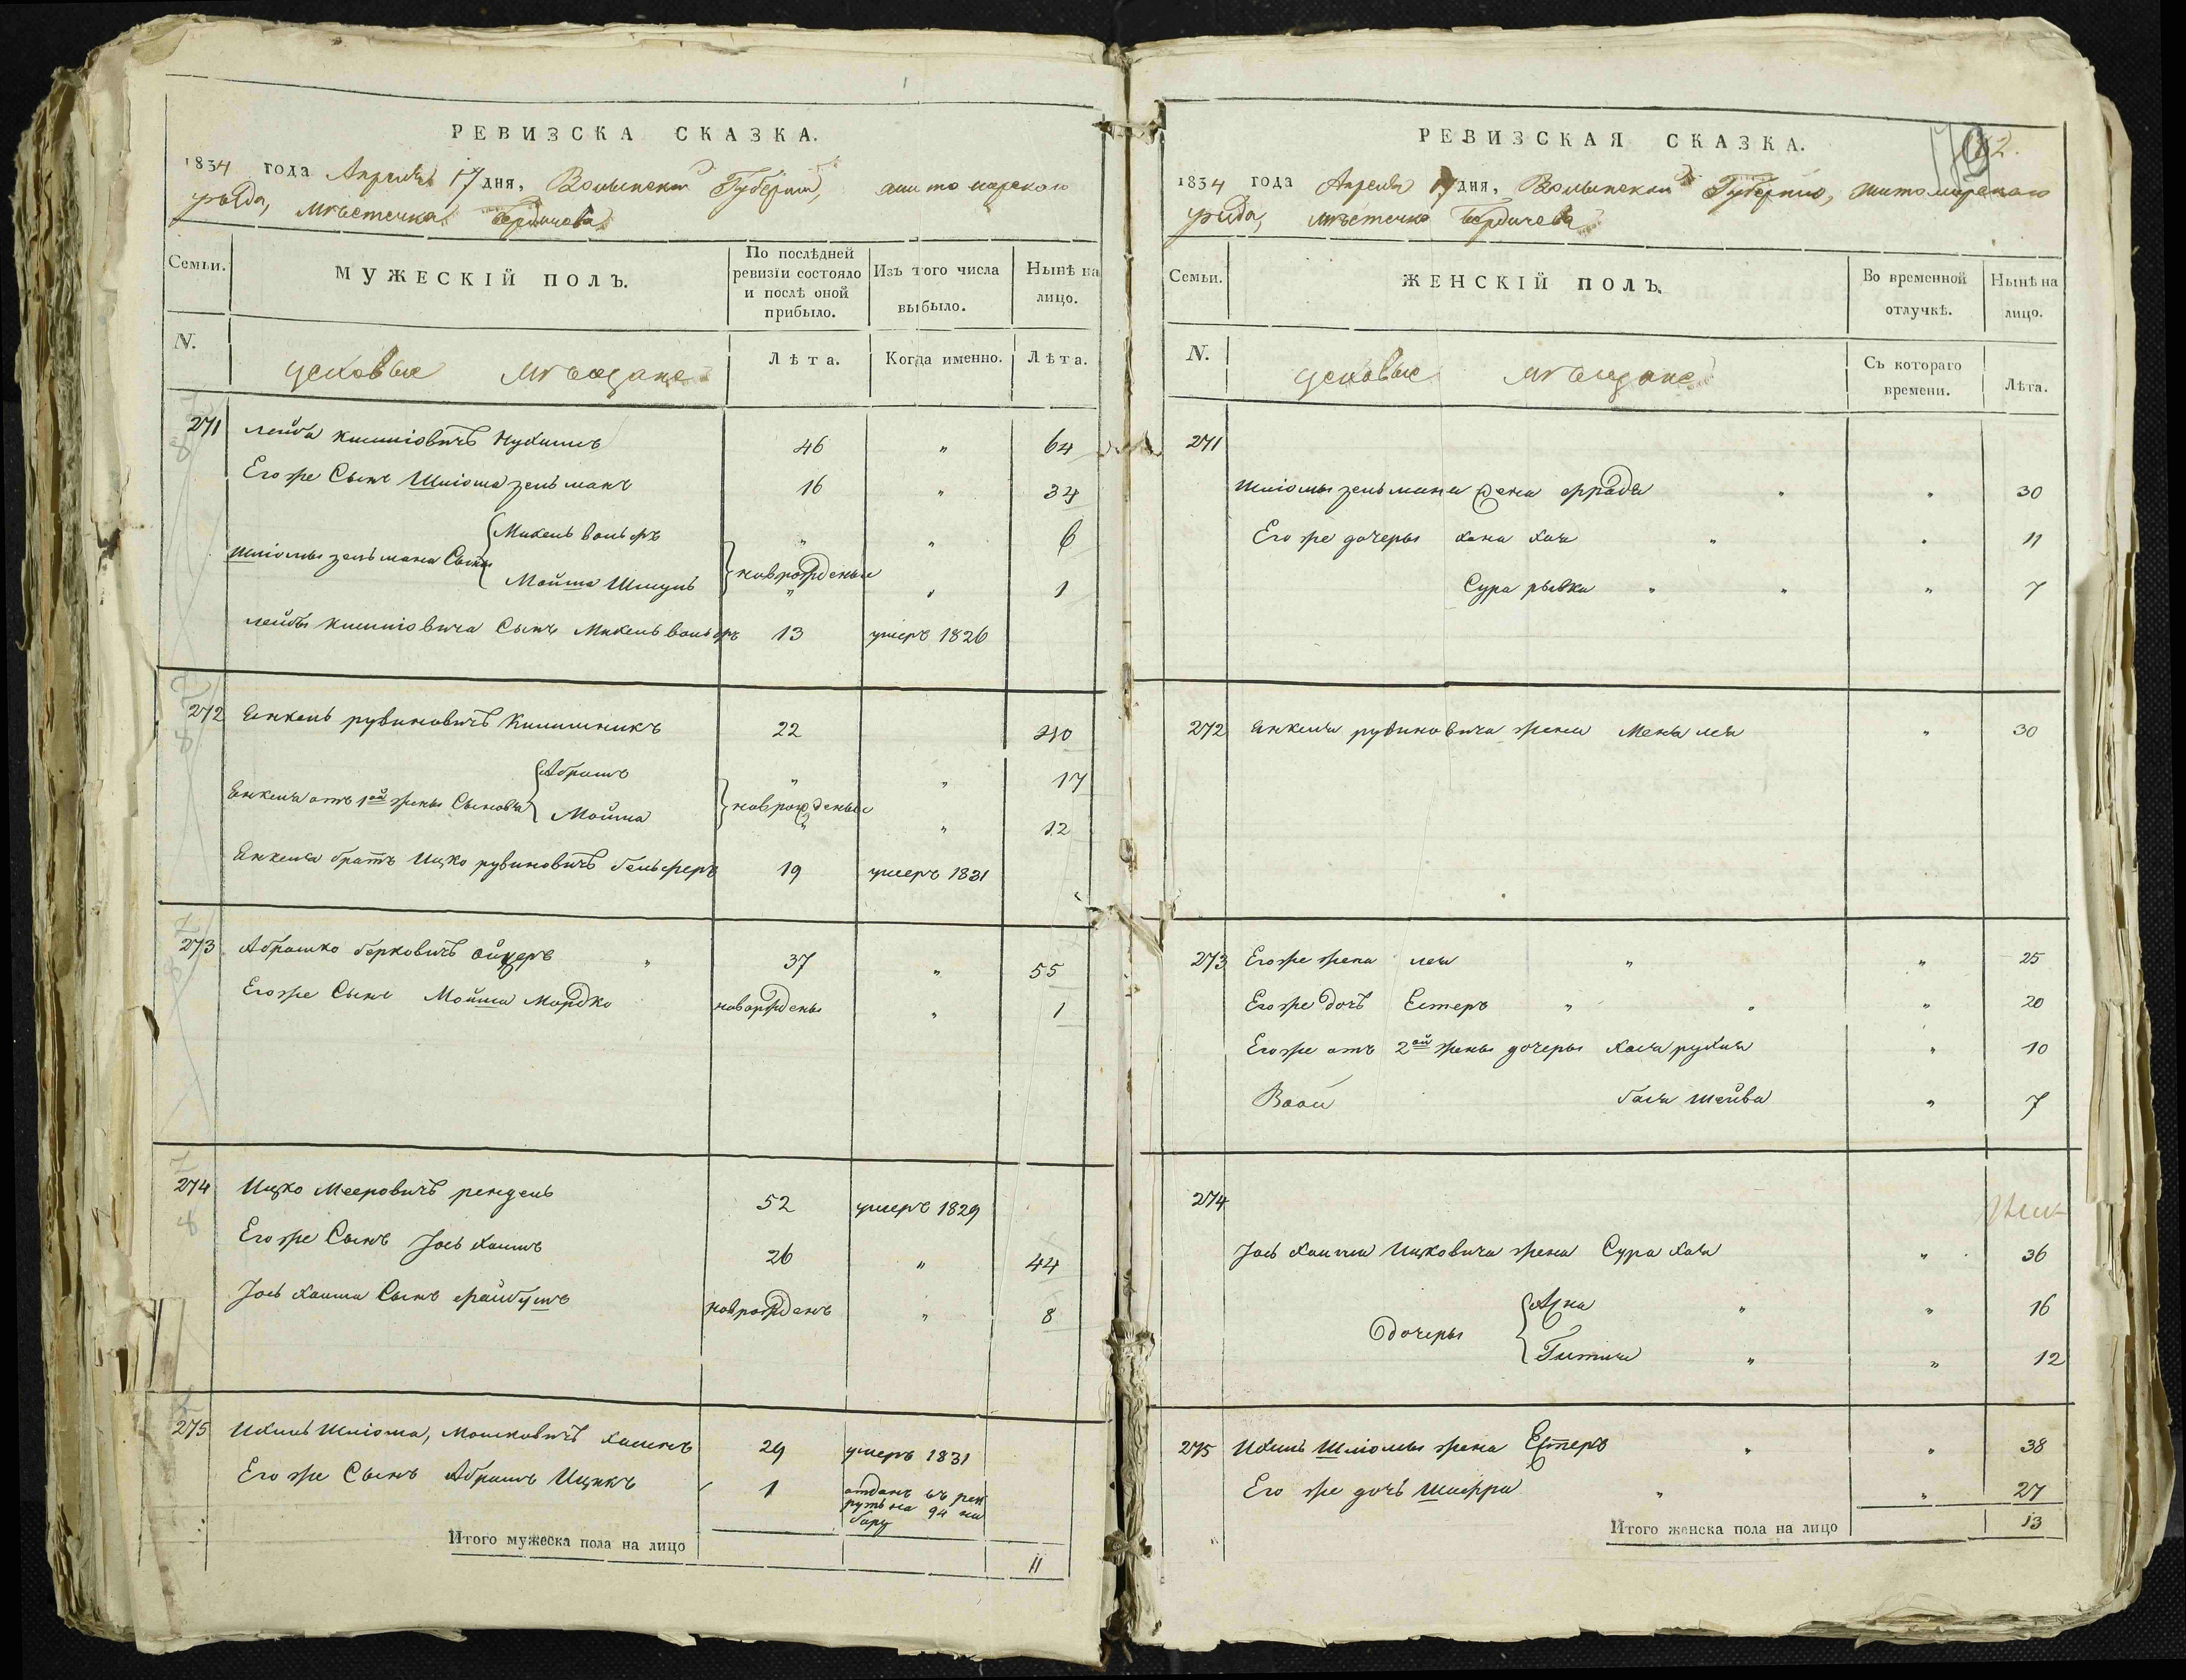 РЕВИЗСКА СКАЗКА.
1834 года Апреля 17 дня, Волынской Губернии, житомирского
уезда, Мѣстечка Бердичева
Семьи.
МУЖЕСКІЙ ПОЛЪ.
По послѣдней ревизіи состояло и послѣ оной прибыло.
Изъ того числа выбыло.
Нынѣ на лицо.
N.
цеховые мѣщане
Лѣта.
Когда именно.
Лѣта.
271 лейба кишніовичъ Нухимъ 46 " 64
Егоже Сынъ Шліома зельманъ 16 " 34
Шліомы зельмана Сыны
Михель вольфъ " " 6
новрожденые
Мойша Шмуль " " 1
лейбы кишніовича Сынъ Михель вольфъ 13 умеръ 1826
272 Янкель рувиновичъ Кишшникъ 22 40
Янкеля отъ 1ой жены Сыновья
Абрамъ " " 17
новрожденые
Мойша " " 12
Янкеля братъ Ицко рувиновичъ бельферъ 19 умеръ 1831
273 Абрамко берковичъ ойцеръ " 37 " 55
Егоже Сынъ Мойша Мордко " новорждены " 1
274 Ицко Мееровичъ рендель 52 умеръ 1829
Егоже Сынъ Іось хаимъ 26 " 44
Іось хаима Сынъ файбушъ новрожденъ " 8
275 Ихиль Шліома, Мошковичъ 29 умеръ 1831
Его же Сынъ Абрамъ Ицикъ 1 отданъ въ рек
руты на 94 на
бору
Итого мужеска пола на лицо 11
РЕВИЗСКАЯ СКАЗКА.
1834 года Апреля 17 дня, Волынской Губерніи, житомирского
уезда, мѣстечка Бердичева
Семьи.
ЖЕНСКІЙ ПОЛЪ.
Во временной отлучкѣ.
Нынѣ на лицо.
N.
цеховые мѣщане
Съ котораго времени.
Лѣта.
271
Шліомы зельмана жена фрадя " " 30
Его же дочеры хана хая " " 11
Сура рывка " " " 7
272 Янкеля рувиновича жена Меня лея " 30
273 Егоже жена лея " " 25
Егоже дочъ Естеръ " " " 20
Егоже отъ 2ой жены дочеры хая рухля " 10
бася шейва " 7
274
Іось хаима Ицковича жена Сура хая " 36
дочеры
Хна " " 16
Гитля " " 12
275 Ихиль Шліомы жена Естеръ " " 38
Его же дочъ Шифра " " 27
Итого женска пола на лицо 13